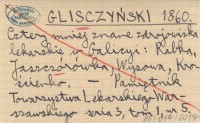 GLISCZYŃSKI 1860.
Cztery mniej znane zdrojowiska
lekarskie w Galicyi: Rabka,
Jaszczorówka, Wysowa, Kro-
ścienko. — Pamiętnik
Towarzystwa Lekarskiego War-
szawskiego seria 3, tom 1 nr 5.